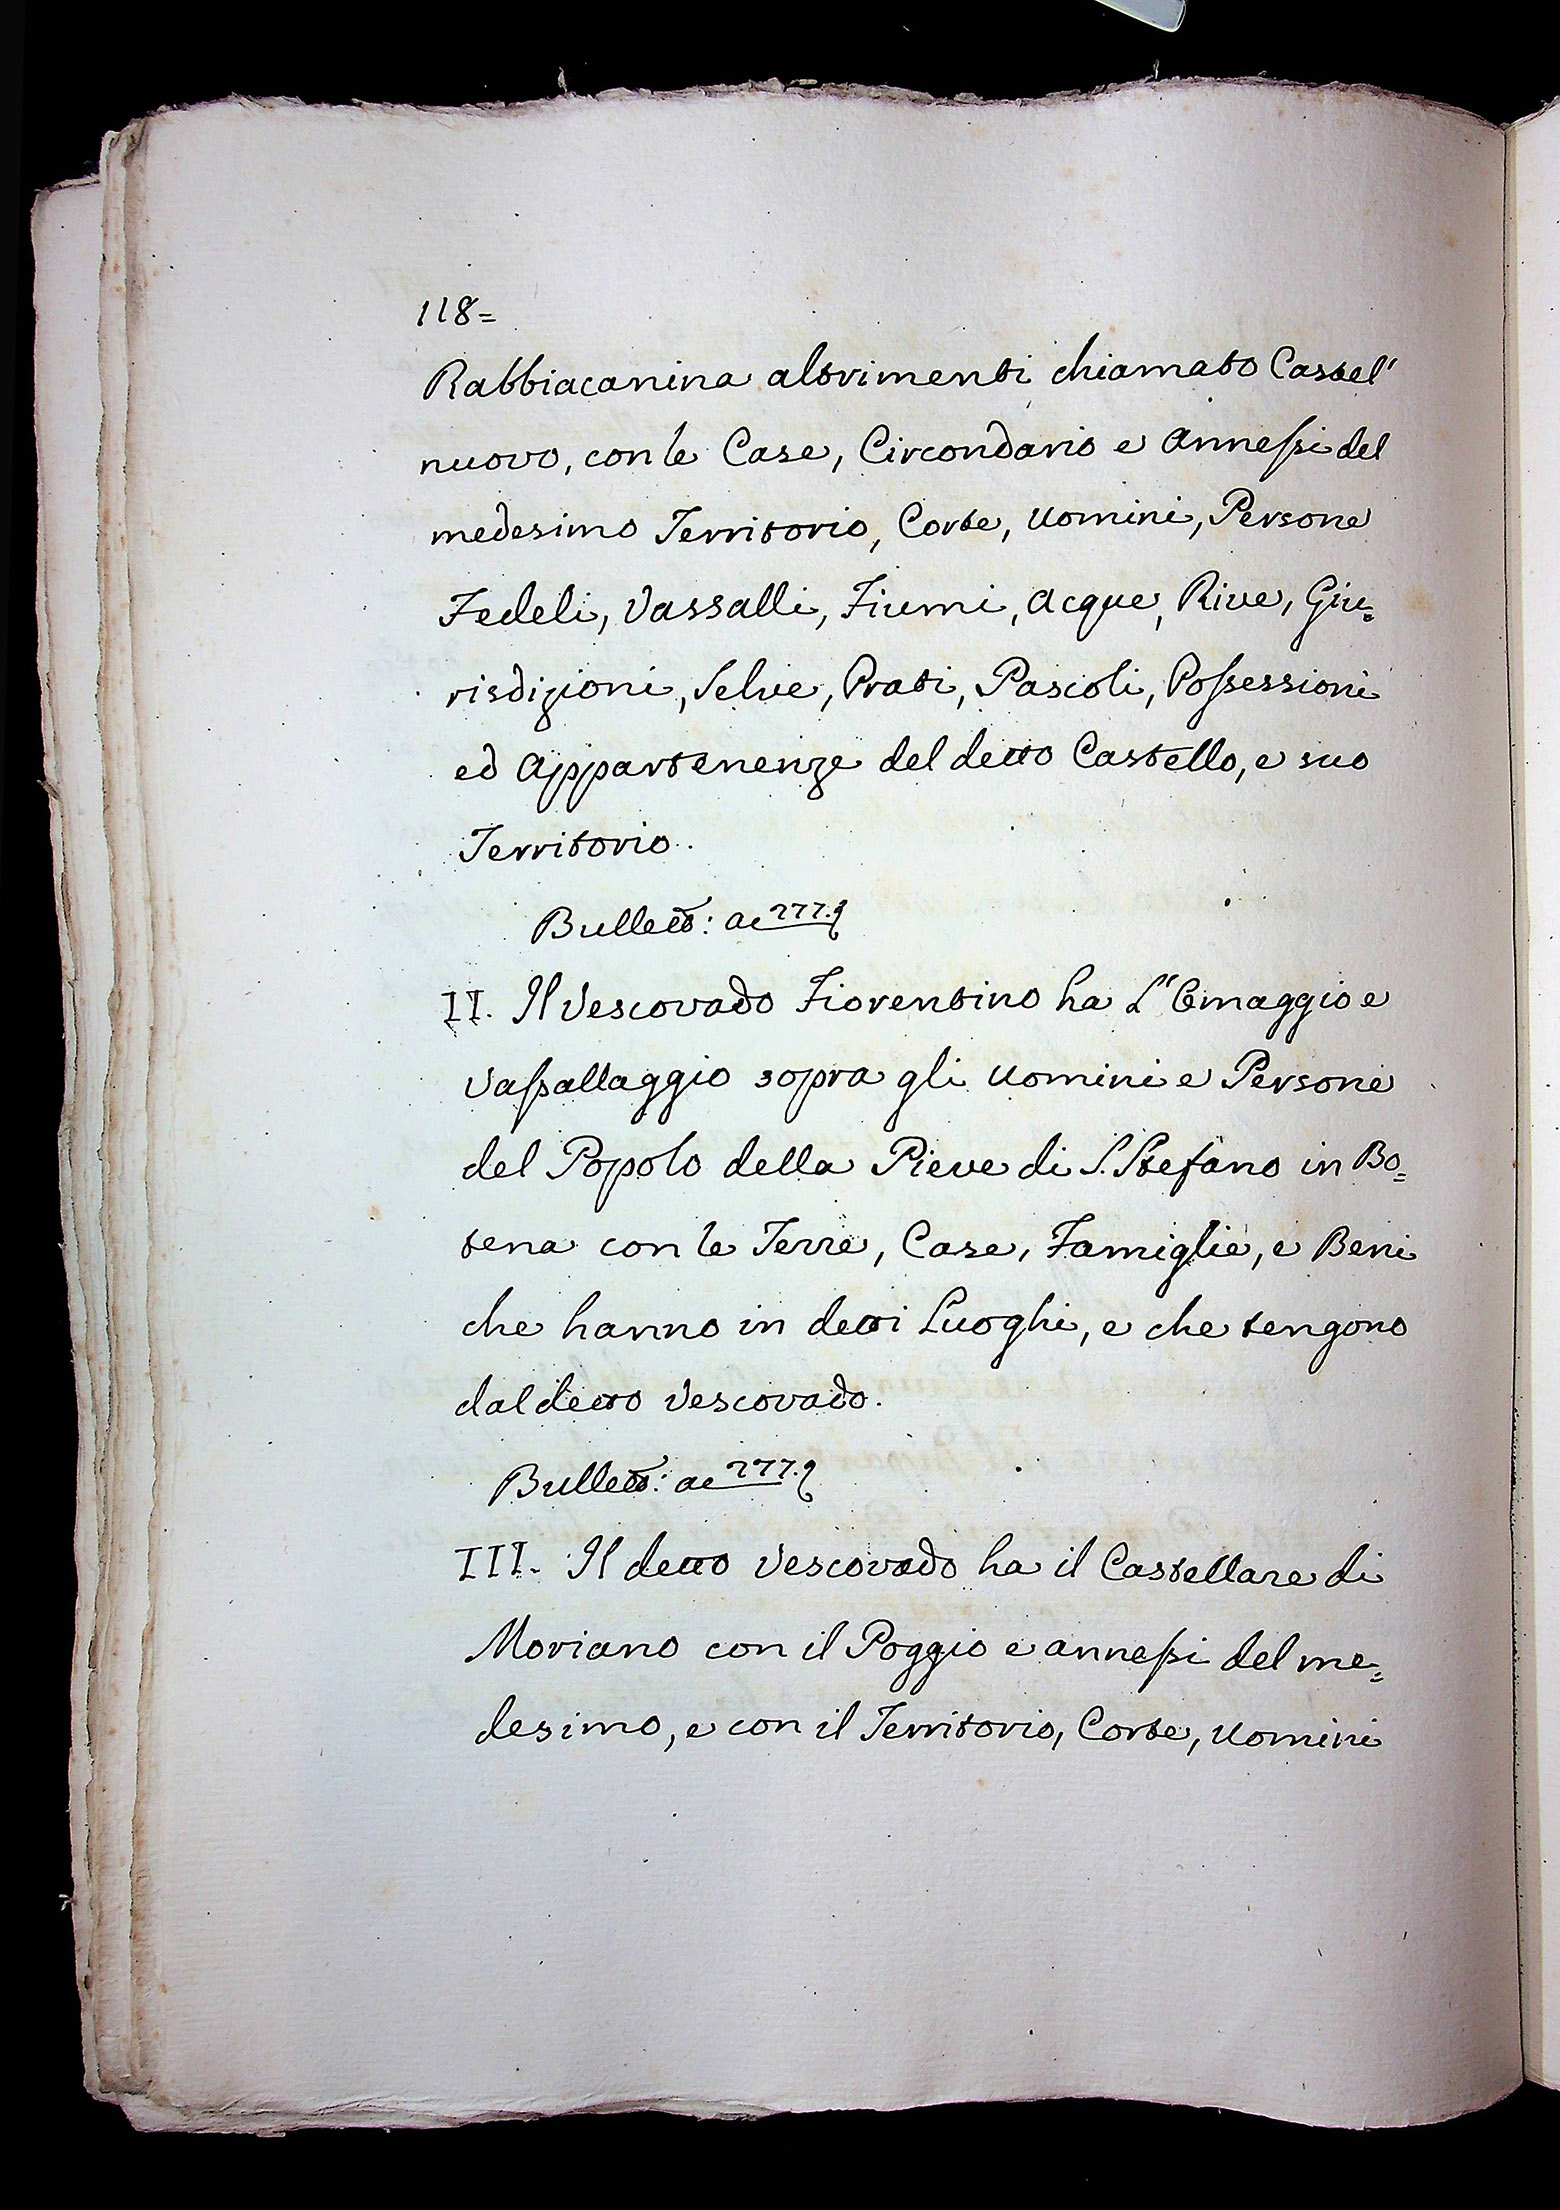 118=
Rabbiacanina altrimenti chiamato Castel'
nuovo, con le Case, Circondario e annessi del
medesimo Territorio, Corte, uomini, Persone
Fedeli, Vassalli, Fiumi, acque, Rive, Giu=
risdizioni, Selve, Prati, Pascoli, Possessioni
ed appartenenze del detto Castello, e suo
Territorio.
Bullett: ac 277.
II. Il Vescovado Fiorentino ha L'Omaggio e
Vassallaggio sopra gli uomini e Persone
del Popolo della Pieve di S. Stefano in Bo=
tena con le Terre, Case, Famiglie, e Beni
che hanno in detti Luoghi, e che tengono
dal detto Vescovado.
Bullett: ac 277.
III. Il detto Vescovado ha il Castellare di
Moriano con il Poggio e annessi del me=
desimo, e con il Territorio, Corte, uomini